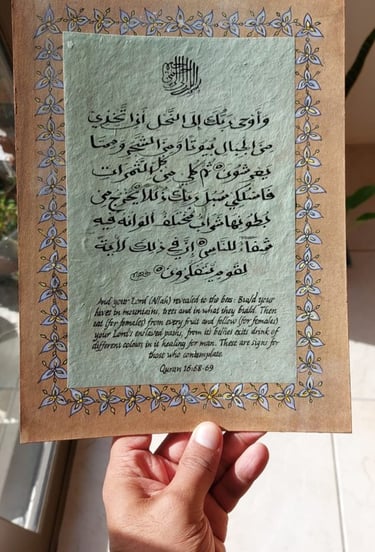 وأوحى ربك إلى النحل أن اتخذي
من الجبال بيوتا ومن الشجر ومما
يعرشون ثم كلي من كل الثمرات
فاسلكي سبل ربك ذللا يخرج من
بطونها شراب مختلف ألوانه فيه
شفاء للناس إن في ذلك لآية
لقوم يتفكرون
And your Lord (Allah) revealed to the bee: Build your
hives in mountains, trees and in what they build. Then
eat (for females) from every fruit and follow (for females)
your Lord's enslaved paths, from its bellies exits drink of
different colours in it healing for man. These are signs for
those who contemplate.
Quran 16:68-69